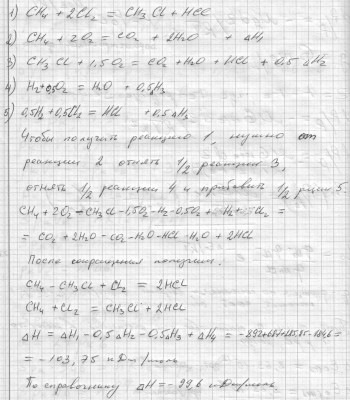 1) CH4 + 2Cl2 = CH3Cl + HCl
2) CH4 + 2O2 = CO2 + 2H2O + ΔH1
3) CH3Cl + 1,5O2 = CO2 + H2O + HCl + 0,5 ΔH2
4) H2 + 0,5O2 = H2O + 0,5H3
5) 0,5H2 + 0,5Cl2 = HCl + 0,5ΔH3
Чтобы получить реакцию 1, нужно от
реакции 2 отнять 1/2 реакции 3,
отнять 1/2 реакции 4 и прибавить 1/2 р-ции 5.
CH4 + 2O2 - CH3Cl - 1,5O2 - H2 - 0,5O2 + H2 + Cl2 =
= CO2 + 2H2O - CO2 - H2O - HCl - H2O + 2HCl
После сокращения получим:
CH4 - CH3Cl + Cl2 = 2HCl
CH4 + Cl2 = CH3Cl + 2HCl
ΔH = ΔH1 - 0,5 ΔH2 - 0,5ΔH3 + ΔH4 = -892+687+285,85-184,6=
= -103,75 кДж/моль
По справочнику ΔH = -99,6 кДж/моль